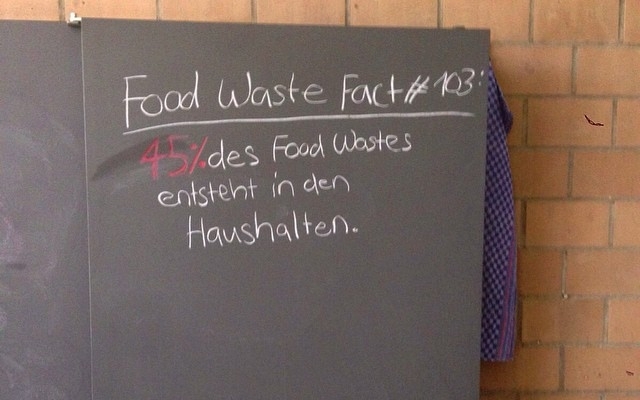 Food Waste Fact # 103:
45% des Food Wastes
entsteht in den
Haushalten.